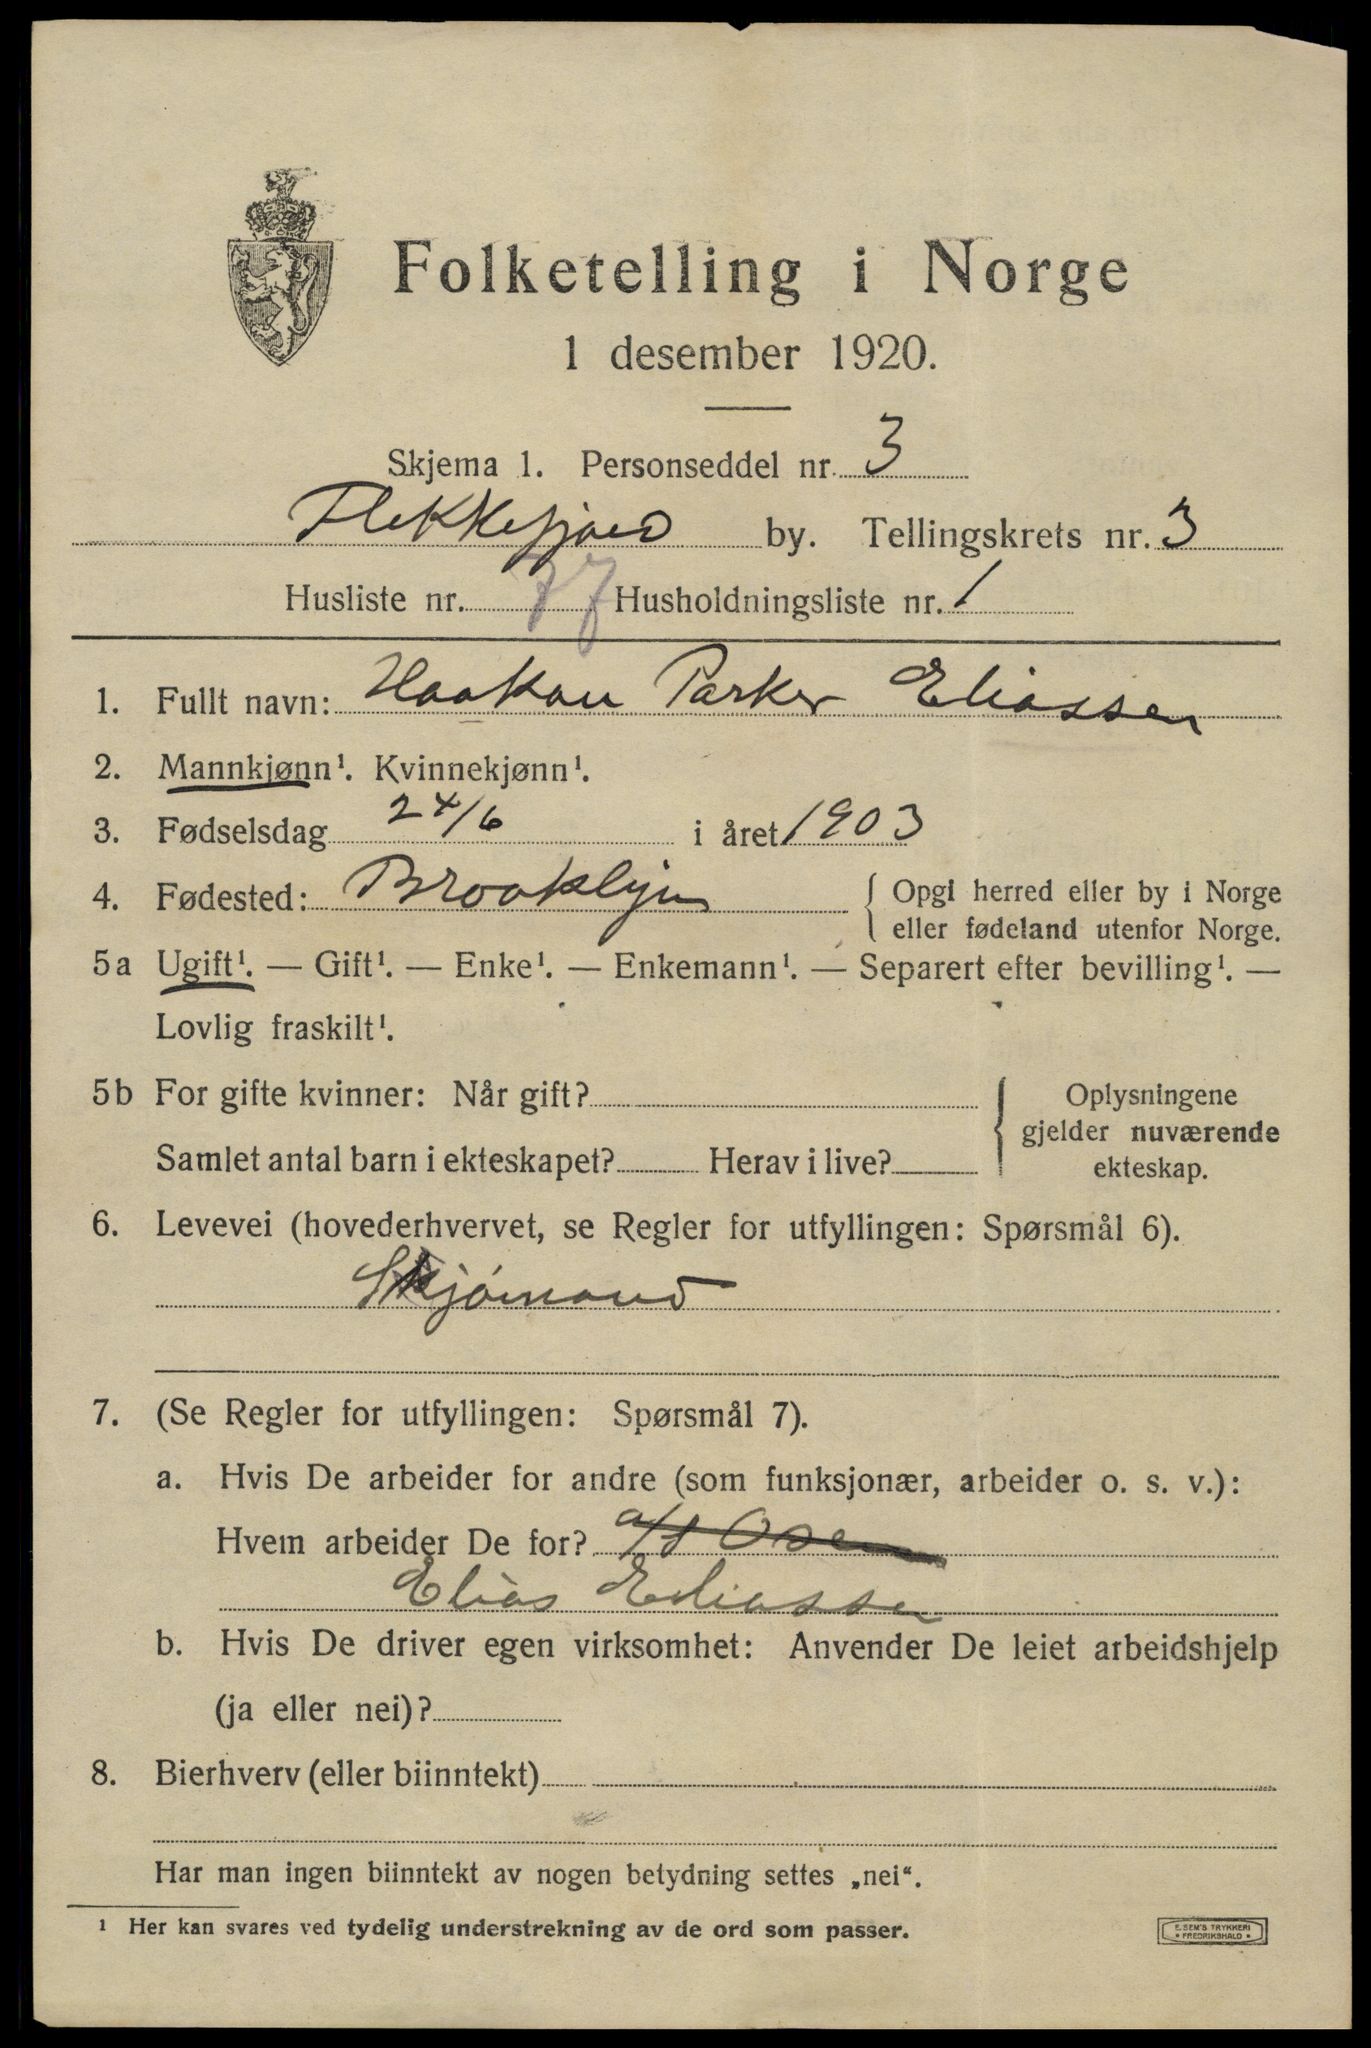 Folketelling i Norge
1 desember 1920.
Skjema 1. Personseddel nr. 3
Flekkefjord by. Tellingskrets nr. 3
Husliste nr. 77 Husholdningsliste nr. 1
1. Fullt navn: Haakon Parker Eliassen
2. Mannkjønn¹. Kvinnekjønn¹.
3. Fødselsdag 24/6 i året 1903
4. Fødested: Brooklyn { Opgi herred eller by i Norge
eller fødeland utenfor Norge.
5a Ugift¹. — Gift¹. — Enke¹. — Enkemann¹. — Separert efter bevilling¹. —
Lovlig fraskilt¹.
5b For gifte kvinner: Når gift? { Oplysningene
gjelder nuværende
Samlet antal barn i ekteskapet? Herav i live? ekteskap.
6. Levevei (hovederhvervet, se Regler for utfyllingen: Spørsmål 6).
Skjømand
7. (Se Regler for utfyllingen: Spørsmål 7).
a. Hvis De arbeider for andre (som funksjonær, arbeider o. s. v.):
Hvem arbeider De for? a/s Osen
Elias Eliassen
b. Hvis De driver egen virksomhet: Anvender De leiet arbeidshjelp
(ja eller nei)?
8. Bierhverv (eller biinntekt)
Har man ingen biinntekt av nogen betydning settes „nei“.
¹ Her kan svares ved tydelig understrekning av de ord som passer.
E. SEM'S TRYKKERI
• FREDRIKSHALD •